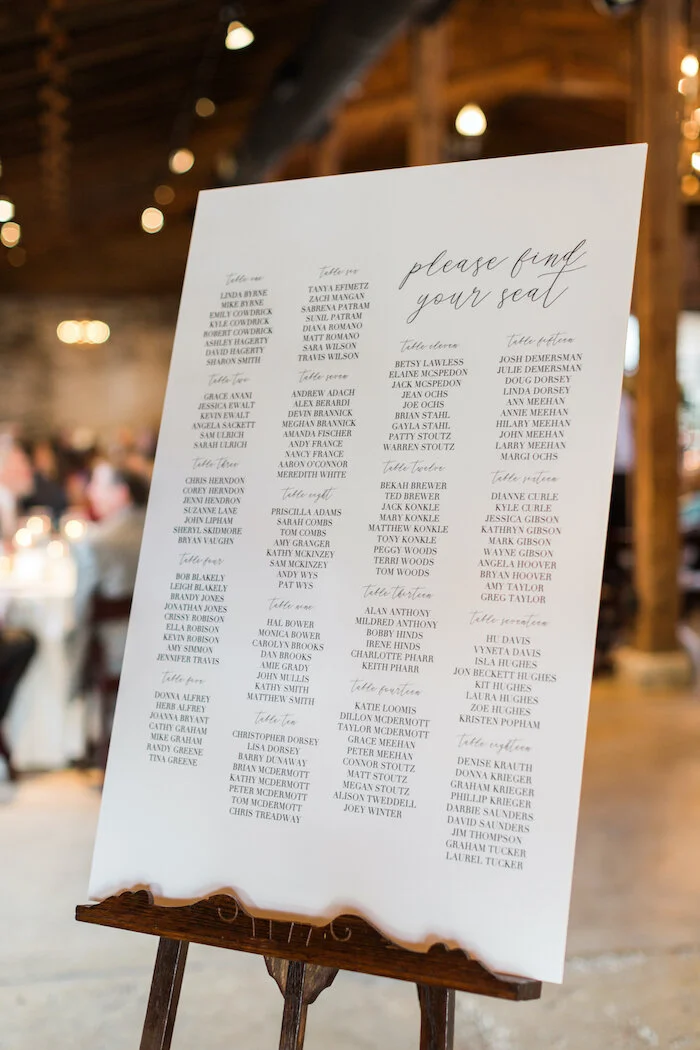 please find
your seat
table one
LINDA BYRNE
MIKE BYRNE
EMILY COWDRICK
KYLE COWDRICK
ROBERT COWDRICK
ASHLEY HAGERTY
DAVID HAGERTY
SHARON SMITH
table two
GRACE ANANI
JESSICA EWALT
KEVIN EWALT
ANGELA SACKETT
SAM ULRICH
SARAH ULRICH
table three
CHRIS HERNDON
COREY HERNDON
JENNI HENDRON
SUZANNE LANE
JOHN LIPHAM
SHERYL SKIDMORE
BRYAN VAUGHN
table four
BOB BLAKELY
LEIGH BLAKELY
BRANDY JONES
JONATHAN JONES
CRISSY ROBISON
ELLA ROBISON
KEVIN ROBISON
AMY SIMMON
JENNIFER TRAVIS
table five
DONNA ALFREY
HERB ALFREY
JOANNA BRYANT
CATHY GRAHAM
MIKE GRAHAM
RANDY GREENE
TINA GREENE
table six
TANYA EFIMETZ
ZACH MANGAN
SABRENA PATRAM
SUNIL PATRAM
DIANA ROMANO
MATT ROMANO
SARA WILSON
TRAVIS WILSON
table seven
ANDREW ADACH
ALEX BERARDI
DEVIN BRANNICK
MEGHAN BRANNICK
AMANDA FISCHER
ANDY FRANCE
NANCY FRANCE
AARON O'CONNOR
MEREDITH WHITE
table eight
PRISCILLA ADAMS
SARAH COMBS
TOM COMBS
AMY GRANGER
KATHY MCKINZEY
SAM MCKINZEY
ANDY WYS
PAT WYS
table nine
HAL BOWER
MONICA BOWER
CAROLYN BROOKS
DAN BROOKS
AMIE GRADY
JOHN MULLIS
KATHY SMITH
MATTHEW SMITH
table ten
CHRISTOPHER DORSEY
LISA DORSEY
BARRY DUNAWAY
BRIAN MCDERMOTT
KATHY MCDERMOTT
PETER MCDERMOTT
TOM MCDERMOTT
CHRIS TREADWAY
table eleven
BETSY LAWLESS
ELAINE MCSPEDON
JACK MCSPEDON
JEAN OCHS
JOE OCHS
BRIAN STAHL
GAYLA STAHL
PATTY STOUTZ
WARREN STOUTZ
table twelve
BEKAH BREWER
TED BREWER
JACK KONKLE
MARY KONKLE
MATTHEW KONKLE
TONY KONKLE
PEGGY WOODS
TERRI WOODS
TOM WOODS
table thirteen
ALAN ANTHONY
MILDRED ANTHONY
BOBBY HINDS
IRENE HINDS
CHARLOTTE PHARR
KEITH PHARR
table fourteen
KATIE LOOMIS
DILLON MCDERMOTT
TAYLOR MCDERMOTT
GRACE MEEHAN
PETER MEEHAN
CONNOR STOUTZ
MATT STOUTZ
MEGAN STOUTZ
ALISON TWEDDELL
JOEY WINTER
table fifteen
JOSH DEMERSMAN
JULIE DEMERSMAN
DOUG DORSEY
LINDA DORSEY
ANN MEEHAN
ANNIE MEEHAN
HILARY MEEHAN
JOHN MEEHAN
LARRY MEEHAN
MARGI OCHS
table sixteen
DIANNE CURLE
KYLE CURLE
JESSICA GIBSON
KATHRYN GIBSON
MARK GIBSON
WAYNE GIBSON
ANGELA HOOVER
BRYAN HOOVER
AMY TAYLOR
GREG TAYLOR
table seventeen
HU DAVIS
VYNETA DAVIS
ISLA HUGHES
JON BECKETT HUGHES
KIT HUGHES
LAURA HUGHES
ZOE HUGHES
KRISTEN POPHAM
table eighteen
DENISE KRAUTH
DONNA KRIEGER
GRAHAM KRIEGER
PHILLIP KRIEGER
DARBIE SAUNDERS
DAVID SAUNDERS
JIM THOMPSON
GRAHAM TUCKER
LAUREL TUCKER